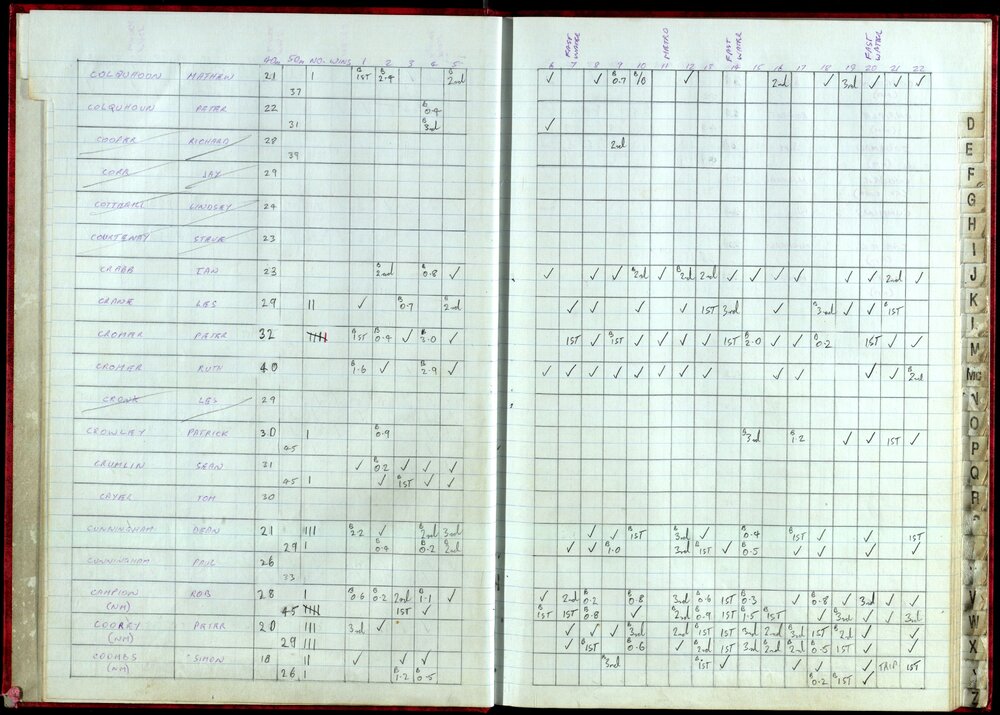 FAST WATER METRO FAST WATER FAST WATER
40m 50m NO. WINS 1 2 3 4 5 6 7 8 9 10 11 12 13 14 15 16 17 18 19 20 21 22
COLQUHOUN MATHEW 21 1 B 1ST B 2.4 B 2nd ✓ ✓ B 0.7 B/B ✓ 2nd ✓ 3rd ✓ ✓ ✓
37
COLQUHOUN PETER 22 B 0.4
31 B 3rd ✓
COOPER RICHARD 28 2nd
39
CORB JAY 29
LINDSEY 24
COURTENAY STEVE 23
CRABB IAN 23 B 2nd B 0.8 ✓ ✓ ✓ ✓ B 2nd ✓ B 2nd 2nd ✓ ✓ ✓ ✓ ✓ ✓ 2nd ✓
CRANE LES 29 11 ✓ B 0.7 B 2nd ✓ ✓ ✓ ✓ 1ST 3rd B 3rd ✓ ✓ 1ST
CROMER PETER 32 B 1ST B 0.4 ✓ B 2.0 ✓ 1ST ✓ B 1ST ✓ ✓ ✓ ✓ 1ST B 2.0 ✓ ✓ B 0.2 1ST ✓ ✓
CROMER RUTH 40 B 1.6 ✓ B 2.9 ✓ ✓ ✓ ✓ ✓ ✓ ✓ ✓ ✓ ✓ ✓ ✓ ✓ B 2nd
CRONK LES 29
CROWLEY PATRICK 30 1 B 0.9 B 3rd B 1.2 ✓ ✓ 1ST ✓
45
CRUMLIN SEAN 31 ✓ B 0.2 ✓ ✓ ✓
45 1 ✓ B 1ST ✓ ✓
CAYER TOM 30
CUNNINGHAM DEAN 21 111 B 2.2 ✓ B 2nd 3rd ✓ ✓ B 1ST B 3rd ✓ B 0.4 B 1ST ✓ ✓ 1ST
29 1 B 0.4 B 0.2 B 2nd ✓ ✓ B 1.0 3rd 1ST ✓ B 0.5 ✓ ✓ ✓ ✓
CUNNINGHAM PAUL 26
33
CAMPION ROB 28 1 B 0.6 B 0.2 2nd B 1.1 ✓ ✓ 2nd B 0.2 B 0.8 3rd B 0.6 1ST B 0.3 ✓ B 0.8 ✓ 3rd ✓ ✓
(NM) 45 1ST ✓ B 1ST 1ST B 0.8 ✓ B 2nd B 0.9 1ST B 1.5 B 1ST ✓ ✓ ✓ 3rd
COORRY PETER 20 111 3rd ✓ ✓ ✓ ✓ B 3rd 2nd B 1ST 1ST B 3rd 2nd B 3rd 1ST B 2nd ✓ ✓
(NM) 29 111 ✓ B 1ST B 0.6 ✓ B 2nd 1ST B 3rd B 2nd B 2nd B 0.5 B 1ST ✓ ✓
COOMBS SIMON 18 11 ✓ ✓ ✓ B 3rd B 1ST ✓ ✓ ✓ ✓ TRIP 1ST
(NM) 26 1 B 1.2 B 0.5 B 0.2 B 1ST ✓
D
E
F
G
H
I
J
K
L
M
Mc
N
O
P
Q
R
V
W
X
Z